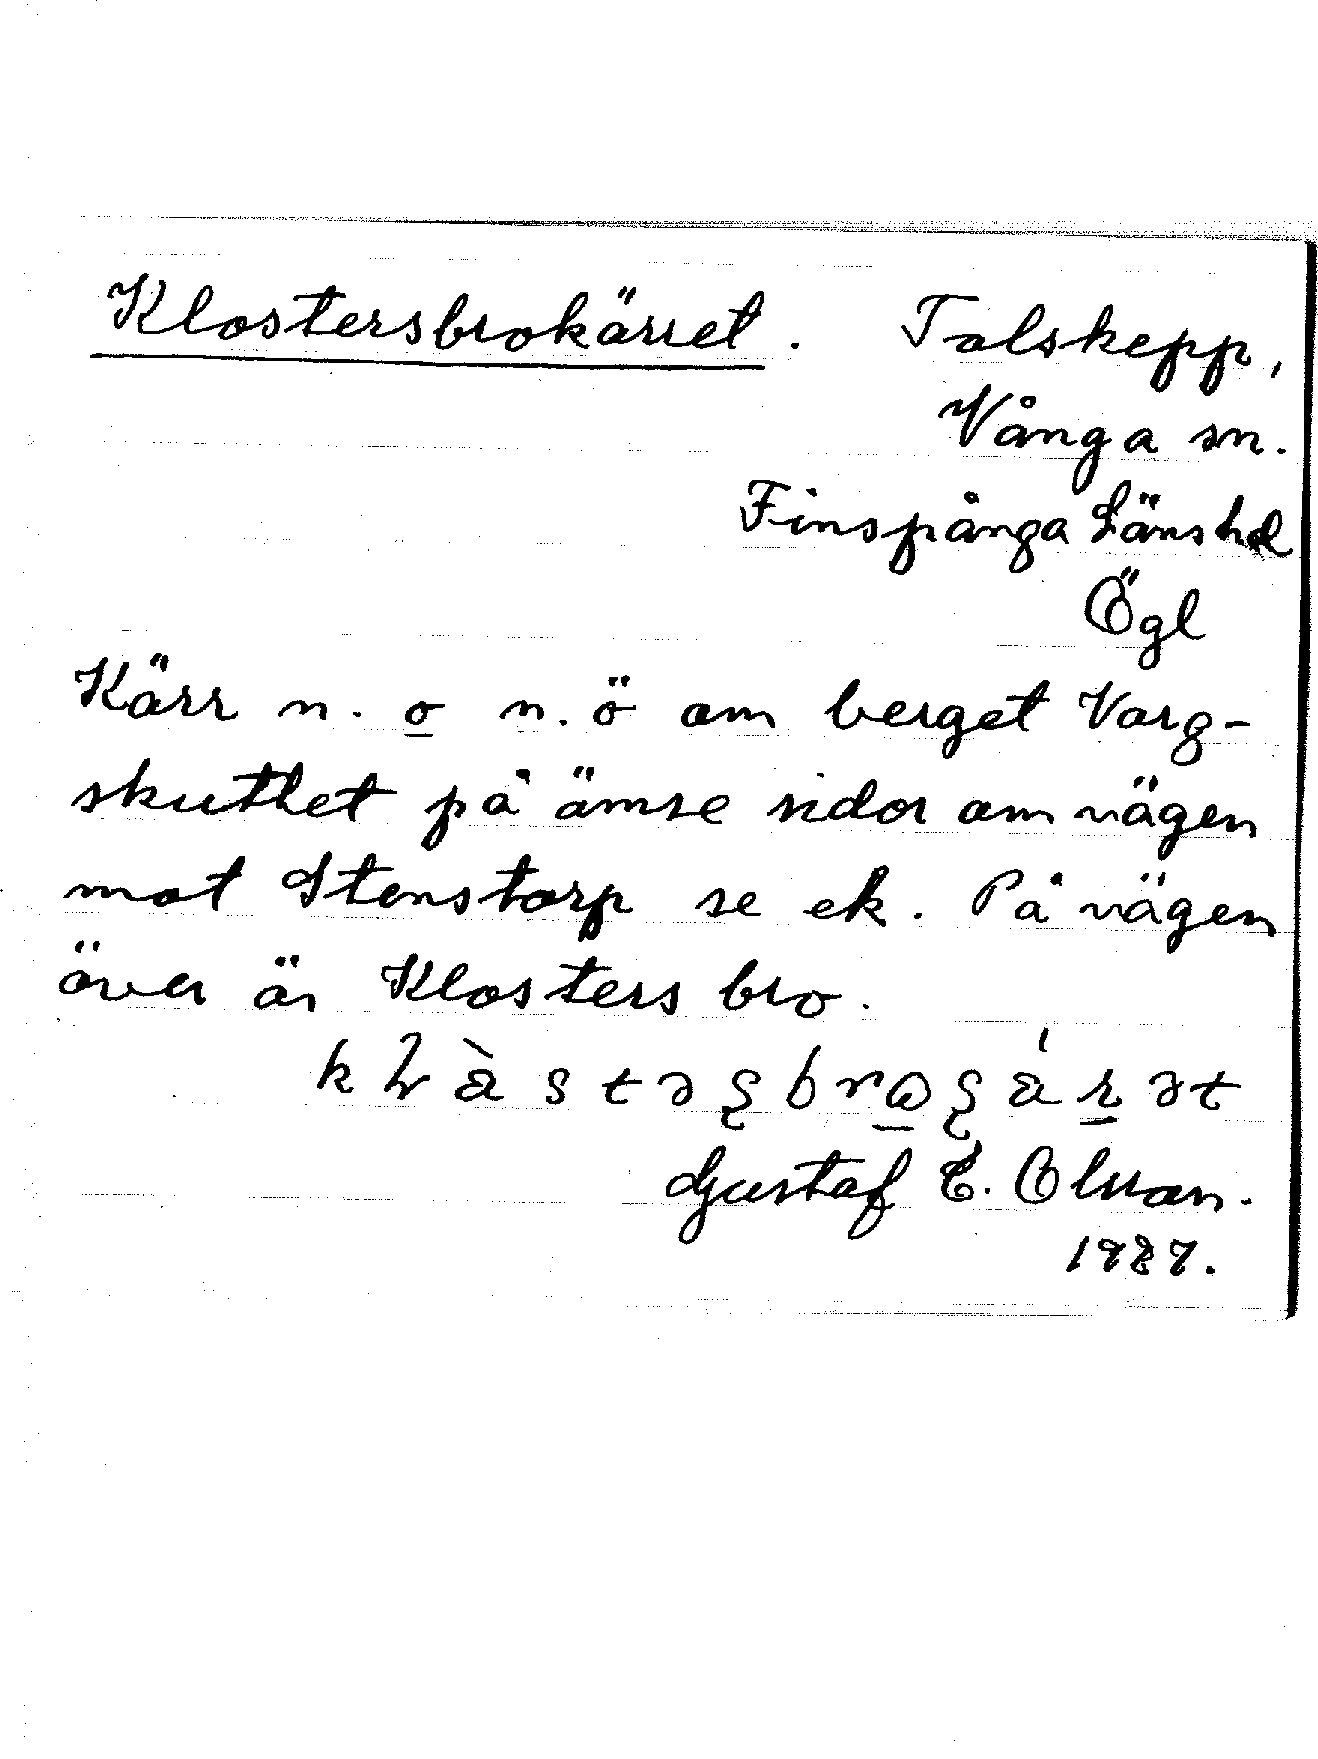 Klostersbrokärret. Tolskepp,
Vånga sn.
Finspånga Länshd
Ögl
Kärr n. o n.ö om berget Varg-
skuthet på ömse sidor om vägen
mot Stenstorp se ek. På vägen
över är Klosters bro.
Gustaf E. Olsson.